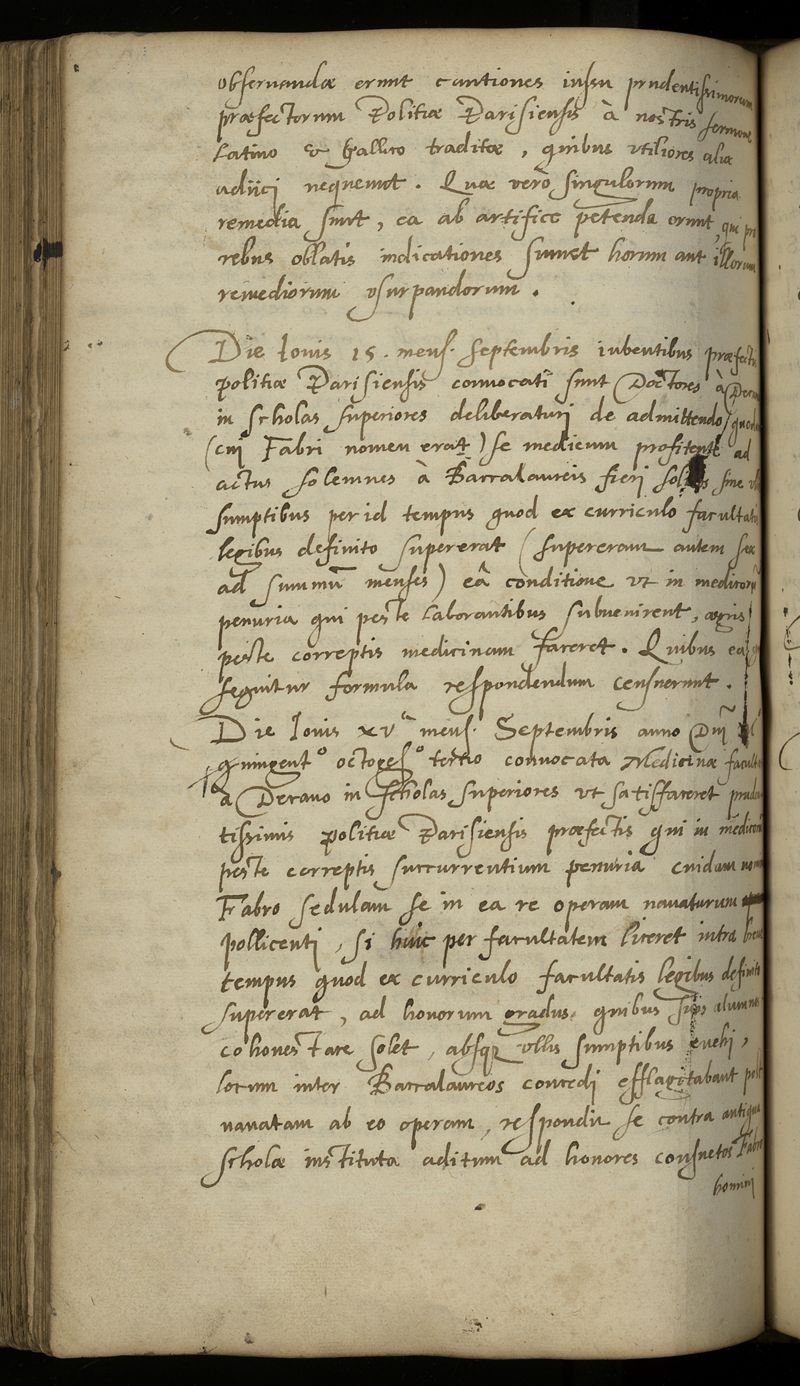 obseruandæ erunt cautiones iussu prudentissimorum
præfectorum Politiæ Parisiensis à nostris sermone
Latino & Gallico traditæ, quibus vtiliores aliæ
adijci nequeunt. Quæ verò singulorum propria
remedia sunt, ea ab artifice petenda erunt, qui
rebus oblatis indicationes sumet horum aut illorum
remediorum vsurpandorum.
Die Iouis 15. mens. Septembris iubentibus præfect
politiæ Parisiensis conuocati sunt Doctores à
in scholas superiores deliberaturi de admittendo
(cui Fabri nomen erat) se medicum profitente ad
actus solemnes à Baccalaureis fieri sine
sumptibus per id tempus quod ex curriculo facultati
legibus definito supererat (supererant autem sex
ad summū menses) eâ conditione vt in medicorū
penuria qui peste laborantibus subuenirent, ægris
peste correptis medicinam faceret. Quibus
sequitur formula respondendum censuerunt.
Die Iouis xv mens. Septembris anno Dnj
quingent° octoges° tertio conuocata Medicinæ facult
à Decano in scholas superiores vt satisfaceret
tissimis politiæ Parisiensis præfectis qui in medicorū
peste correptis succurrentium penuria cuidam
Fabro sedulam se in ea re operam nauaturum
pollicenti, si huic per facultatem liceret intra
tempus quod ex curriculo facultatis legibus definito
supererat, ad honorum gradus, quibus alumnos
cohonestare solet, absq; vllis sumptibus euehi,
locum inter Baccalaureos concedi efflagitabant post
nauatam ab eo operam, respondit se contra antiqua
scholæ instituta aditum ad honores consuetos Fabro
homini